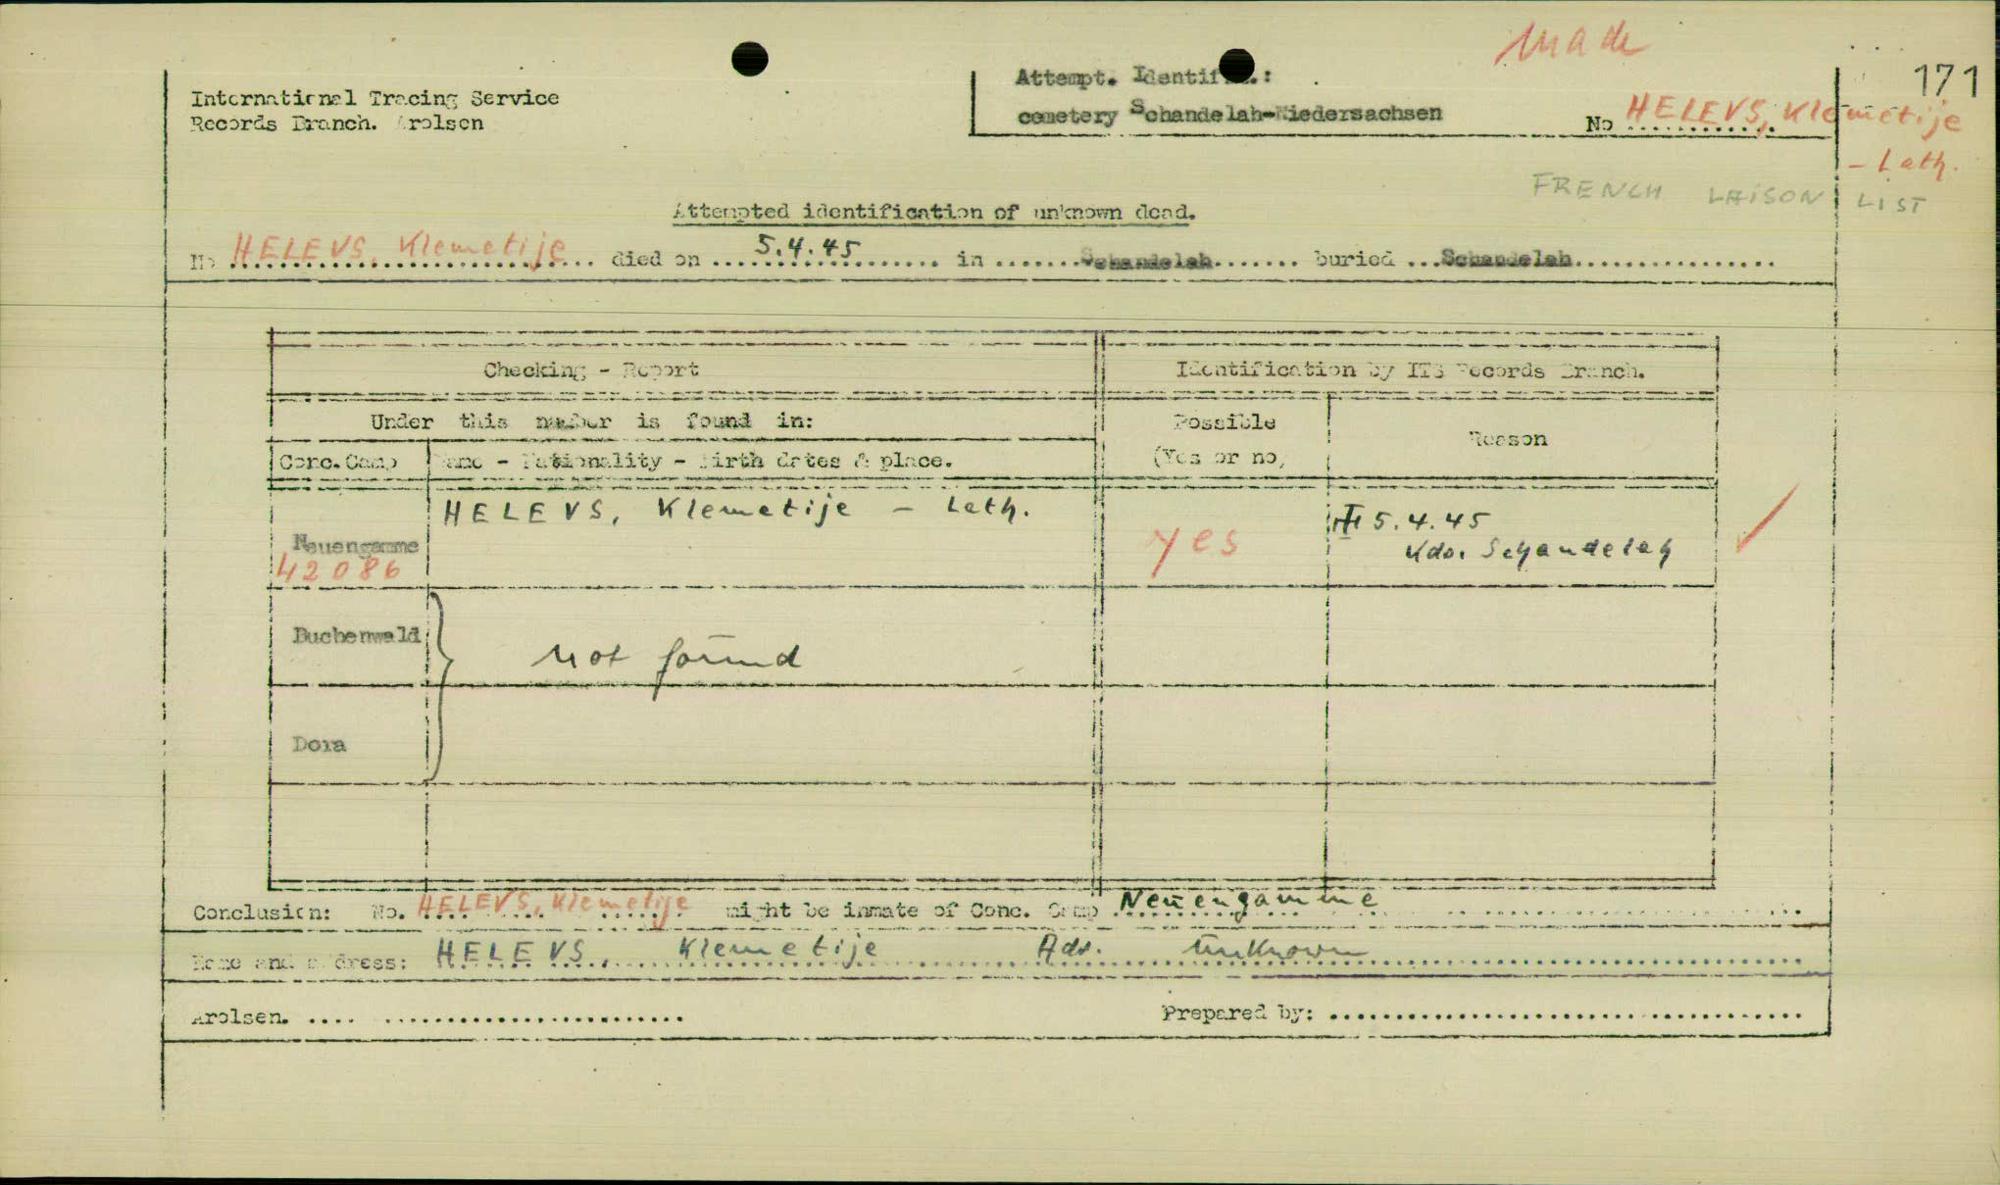 made
171
International Tracing Service
Records Branch. Arolsen
Attempt. Identif..:
cemetery Schandelah-Niedersachsen
No HELEVS, Klemetije
- Leth.
FRENCH LAISON LIST
Attempted identification of unknown dead.
No HELEVS, Klemetije died on 5.4.45 in Schandelah buried Schandelah
Checking - Report
Identification by ITS Records Branch.
Under this number is found in:
Possible
(Yes or no)
Reason
Conc. Camp
Name - Nationality - Birth dates & place.
HELEVS, Klemetije - Leth.
Neuengamme
42086
yes
5.4.45
Kdo. Schandelah
Buchenwald
not found
Dora
Conclusion: No. HELEVS, Klemetije might be inmate of Conc. Camp Neuengamme
Name and address: HELEVS, Klemetije Adr. unknown
Arolsen. ....
Prepared by: